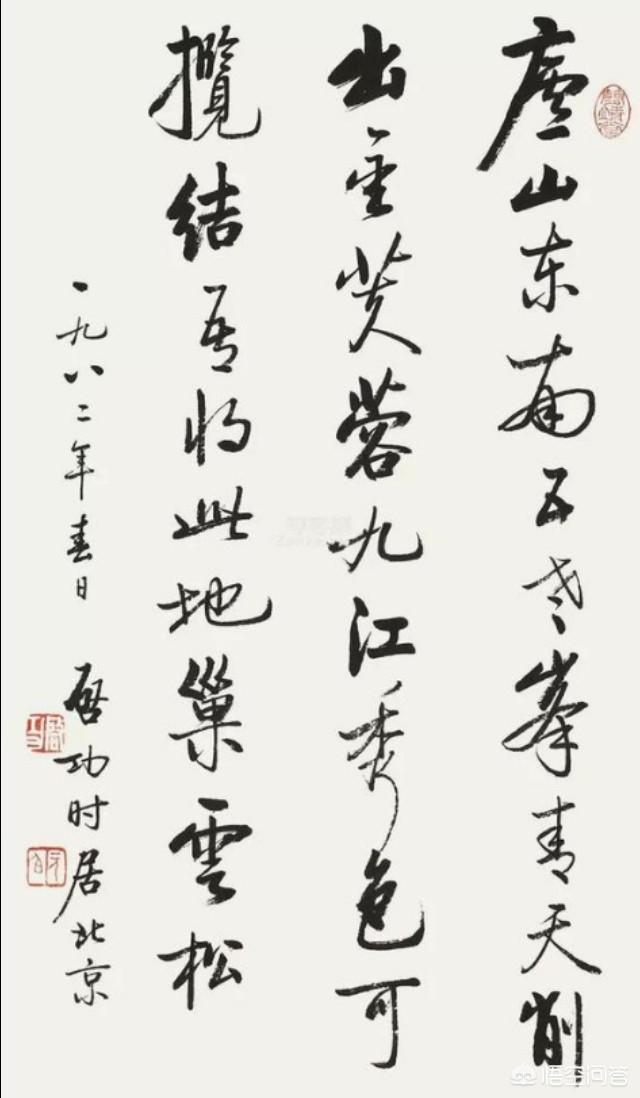 廬山东南五老峯青天削
出金芙蓉九江秀色可
攬結吾将此地巢雲松
一九八二年春日 启功时居北京
元白
悟空问答